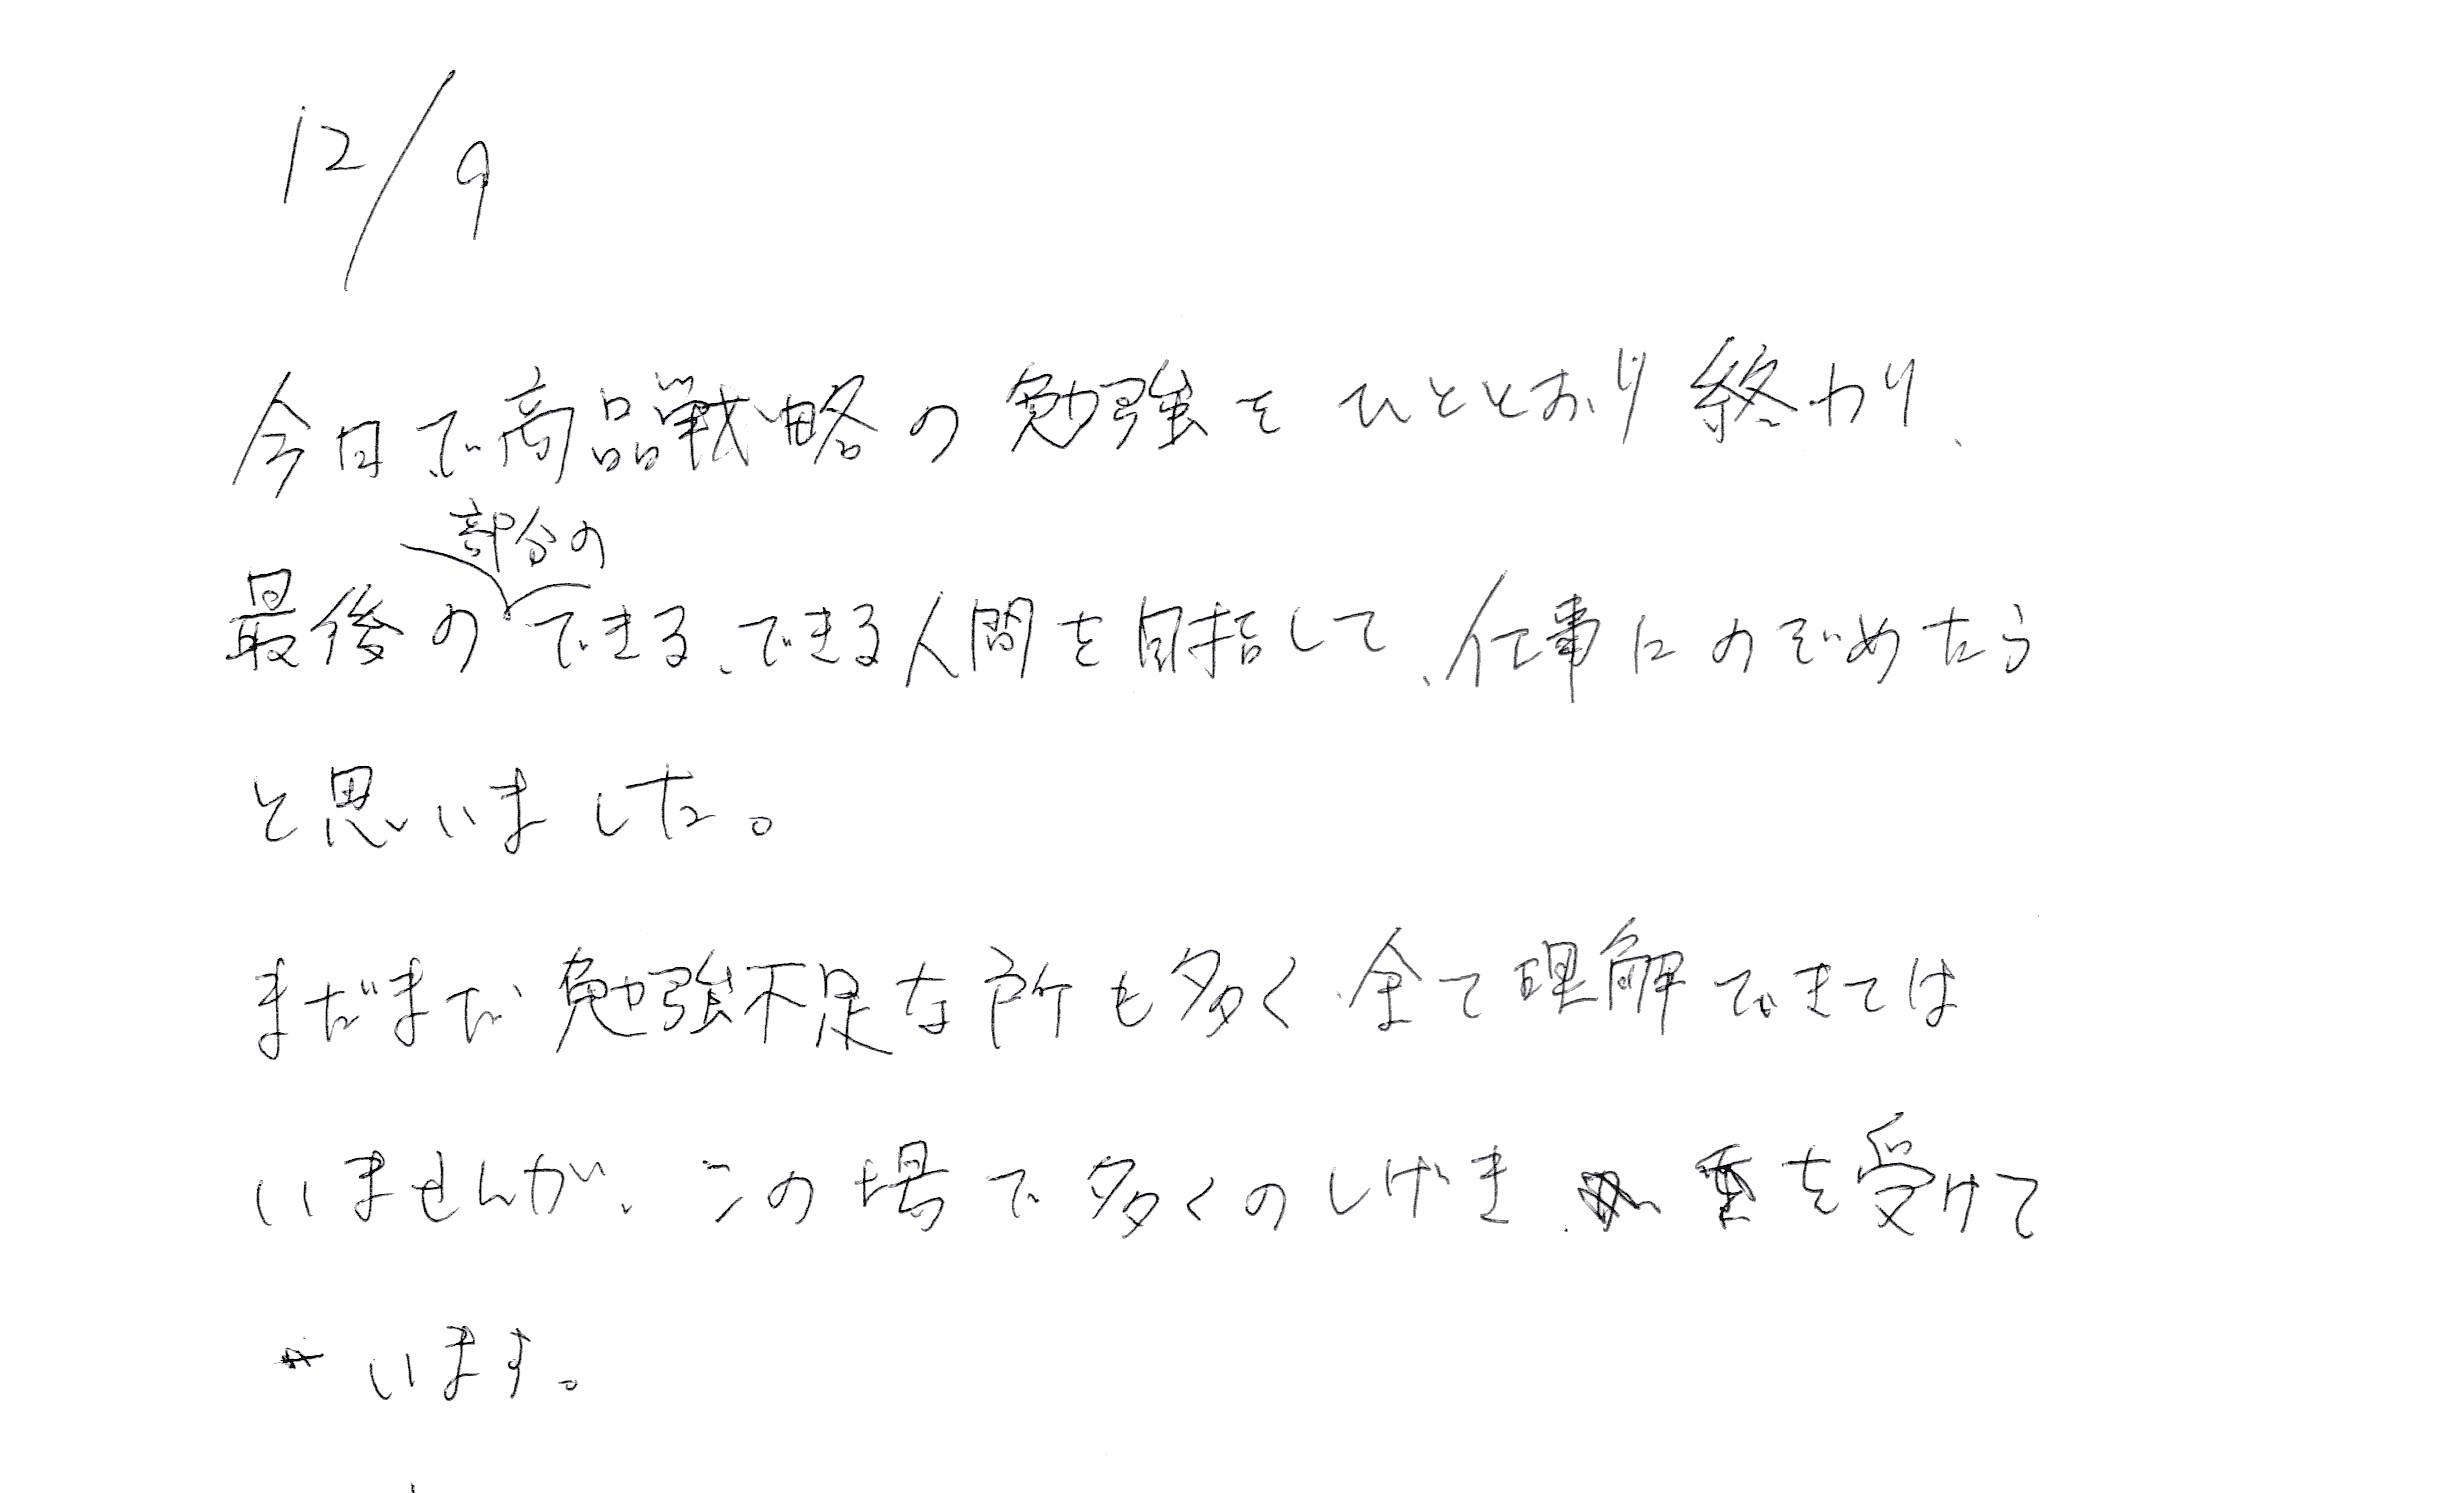 12/9
今日で商品戦略の勉強をひととおり終わり、
部分の
最後のできる、できる人間を目指して、仕事にのぞめたら
と思いました。
まだまだ勉強不足な所も多く全て理解できては
いませんが、この場で多くのしげきを受けて
います。